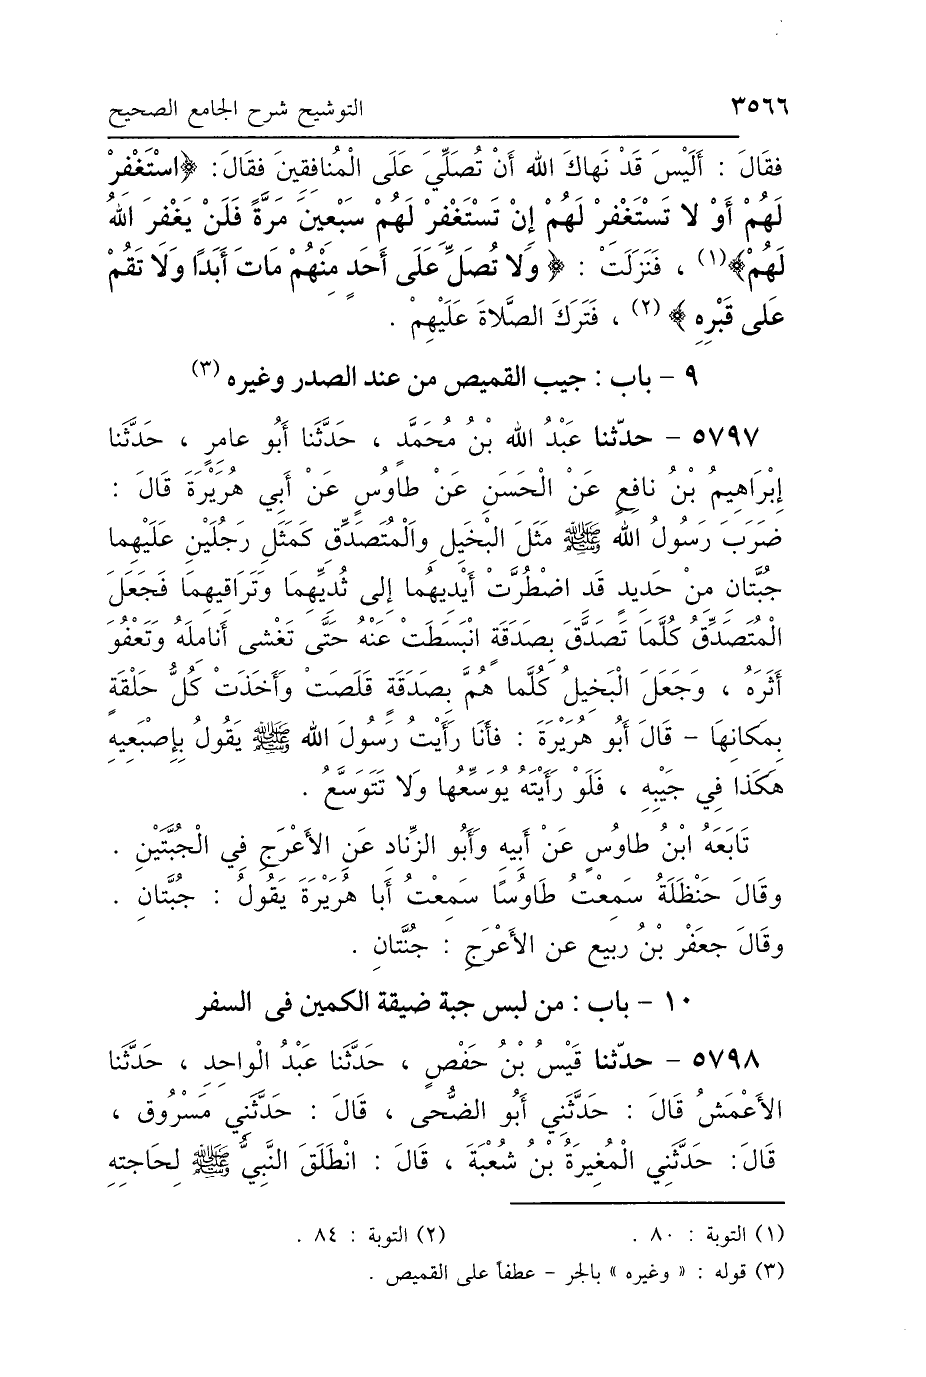 ٣٥٦٦ التوشيح شرح الجامع الصحيح
فقَالَ : أَلَيْسَ قَدْ نَهاكَ الله أَنْ تُصَلِّيَ عَلَى الْمُنافِقِينَ فقَالَ: ﴿اسْتَغْفِرْ
لَهُمْ أَوْ لا تَسْتَغْفِرْ لَهُمْ إِنْ تَسْتَغْفِرْ لَهُمْ سَبْعِينَ مَرَّةً فَلَنْ يَغْفِرَ اللهُ
لَهُمْ﴾(١) ، فَنَزَلَتْ : ﴿ وَلا تُصَلِّ عَلَى أَحَدٍ مِنْهُمْ مَاتَ أَبَدًا وَلا تَقُمْ
عَلَى قَبْرِهِ ﴾ (٢) ، فَتَرَكَ الصَّلاةَ عَلَيْهِمْ .
٩ – باب : جيب القميص من عند الصدر وغيره (٣)
٥٧٩٧ – حدّثنا عَبْدُ الله بْنُ مُحَمَّدٍ ، حَدَّثَنا أَبُو عامرٍ ، حَدَّثَنا
إِبْرَاهِيمُ بْنُ نافِعٍ عَنْ الْحَسَنِ عَنْ طاوُسٍ عَنْ أَبِي هُرَيْرَةَ قَالَ :
ضَرَبَ رَسُولُ الله ﷺ مَثَلَ البْخَيلِ والْمُتَصَدِّقِ كَمَثَلِ رَجُلَيْنِ عَلَيْهِما
جبَّتان مِنْ حَديدٍ قَد اضْطُرَّتْ أَيْدِيهُما إلى ثُدِيِّهِمَا وَتَرَاقِيهِمَا فَجَعَلَ
الْمُتَصَدِّقُ كُلَّمَا تَصَدَّقَ بِصَدَقَةٍ انْبَسَطَتْ عَنْهُ حَتَّى تَغْشى أَنامِلَهُ وَتَعْفُوَ
أَثَرَهُ ، وَجَعَلَ الْبَخيلُ كُلَّما هُمَّ بِصَدَقَةٍ قَلَصَتْ وَأَخَذَتْ كُلُّ حَلْقَةٍ
بِمَكانِهَا – قَالَ أَبُو هُرَيْرَةَ : فأَنَا رَأَيْتُ رَسُولَ الله ﷺ يَقُولُ بِإِصْبَعِيهِ
هَكَذا فِي جَيْبِهِ ، فَلَوْ رَأَيْتَهُ يُوَسِّعُها وَلا تَتَوَسَّعُ .
تَابَعَهُ ابْنُ طاوُسٍ عَنْ أَبِيهِ وَأَبُو الزِّنادِ عَنِ الأَعْرَجِ في الْجُبَّتَيْنِ .
وقَالَ حَنْظَلَةُ سَمِعْتُ طَاوُسًا سَمِعتُ أَبا هُرَيْرَةَ يَقُولُ : جُبَّتانِ .
وقَالَ جعَفَرُ بْنُ ربيع عن الأَعْرَجِ : جُنَّتانِ .
١٠ – باب : من لبس جبة ضيقة الكمين فى السفر
٥٧٩٨ – حدّثنا قَيْسُ بْنُ حَفْصٍ ، حَدَّثَنا عَبْدُ الْواحِدِ ، حَدَّثَنا
الأَعْمَشُ قَالَ : حَدَّثَنِي أَبُو الضُّحى ، قَالَ : حَدَّثَنِي مَسْرُوق ،
قَالَ: حَدَّثَنِي الْمُغِيرَةُ بْنُ شُعْبَةَ ، قَالَ : انْطَلَقَ النَّبِيُّ ﷺ لِحَاجتِهِ
(١) التوبة : ٨٠ . (٢) التوبة : ٨٤ .
(٣) قوله : « وغيره » بالجر – عطفاً على القميص .